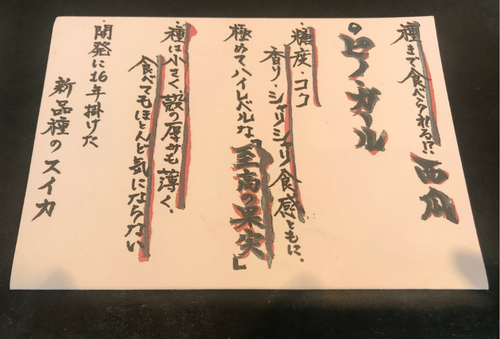 種まで食べられる!? 西瓜
・ピノ・ガール
・糖度・コク
香り・シャリシャリ食感ともに、
極めてハイレベルな「至高の果実」
・種は小さく殻の厚みも薄く、
食べてもほとんど気にならない
・開発に16年掛けた
新品種のスイカ